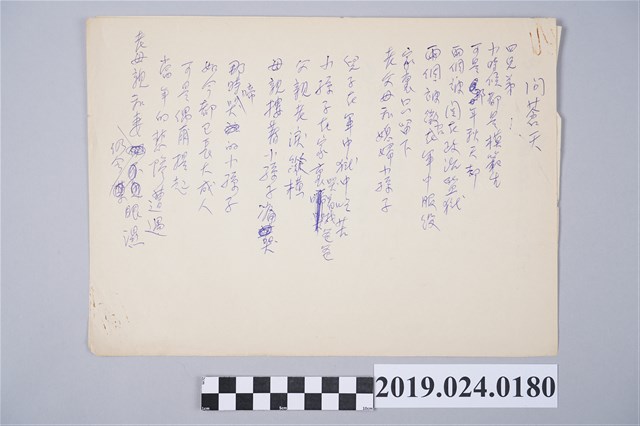 問蒼天
四兄弟
小時候都是模範生
可是 年秋天都
兩個被 關在政治監獄
兩個被徵在軍中服役
家裏只留下
老父母和媳婦小孫子
兒子在軍中獄中受苦
小孫子在家裏哭喊爸爸
父親老淚縱橫
母親摟着小孫子痛哭
那時啼哭的小孫子
如今都已長大成人
可是偶爾提起
當年的悲慘遭遇
老母親和妻 仍會 眼濕
2019.024.0180